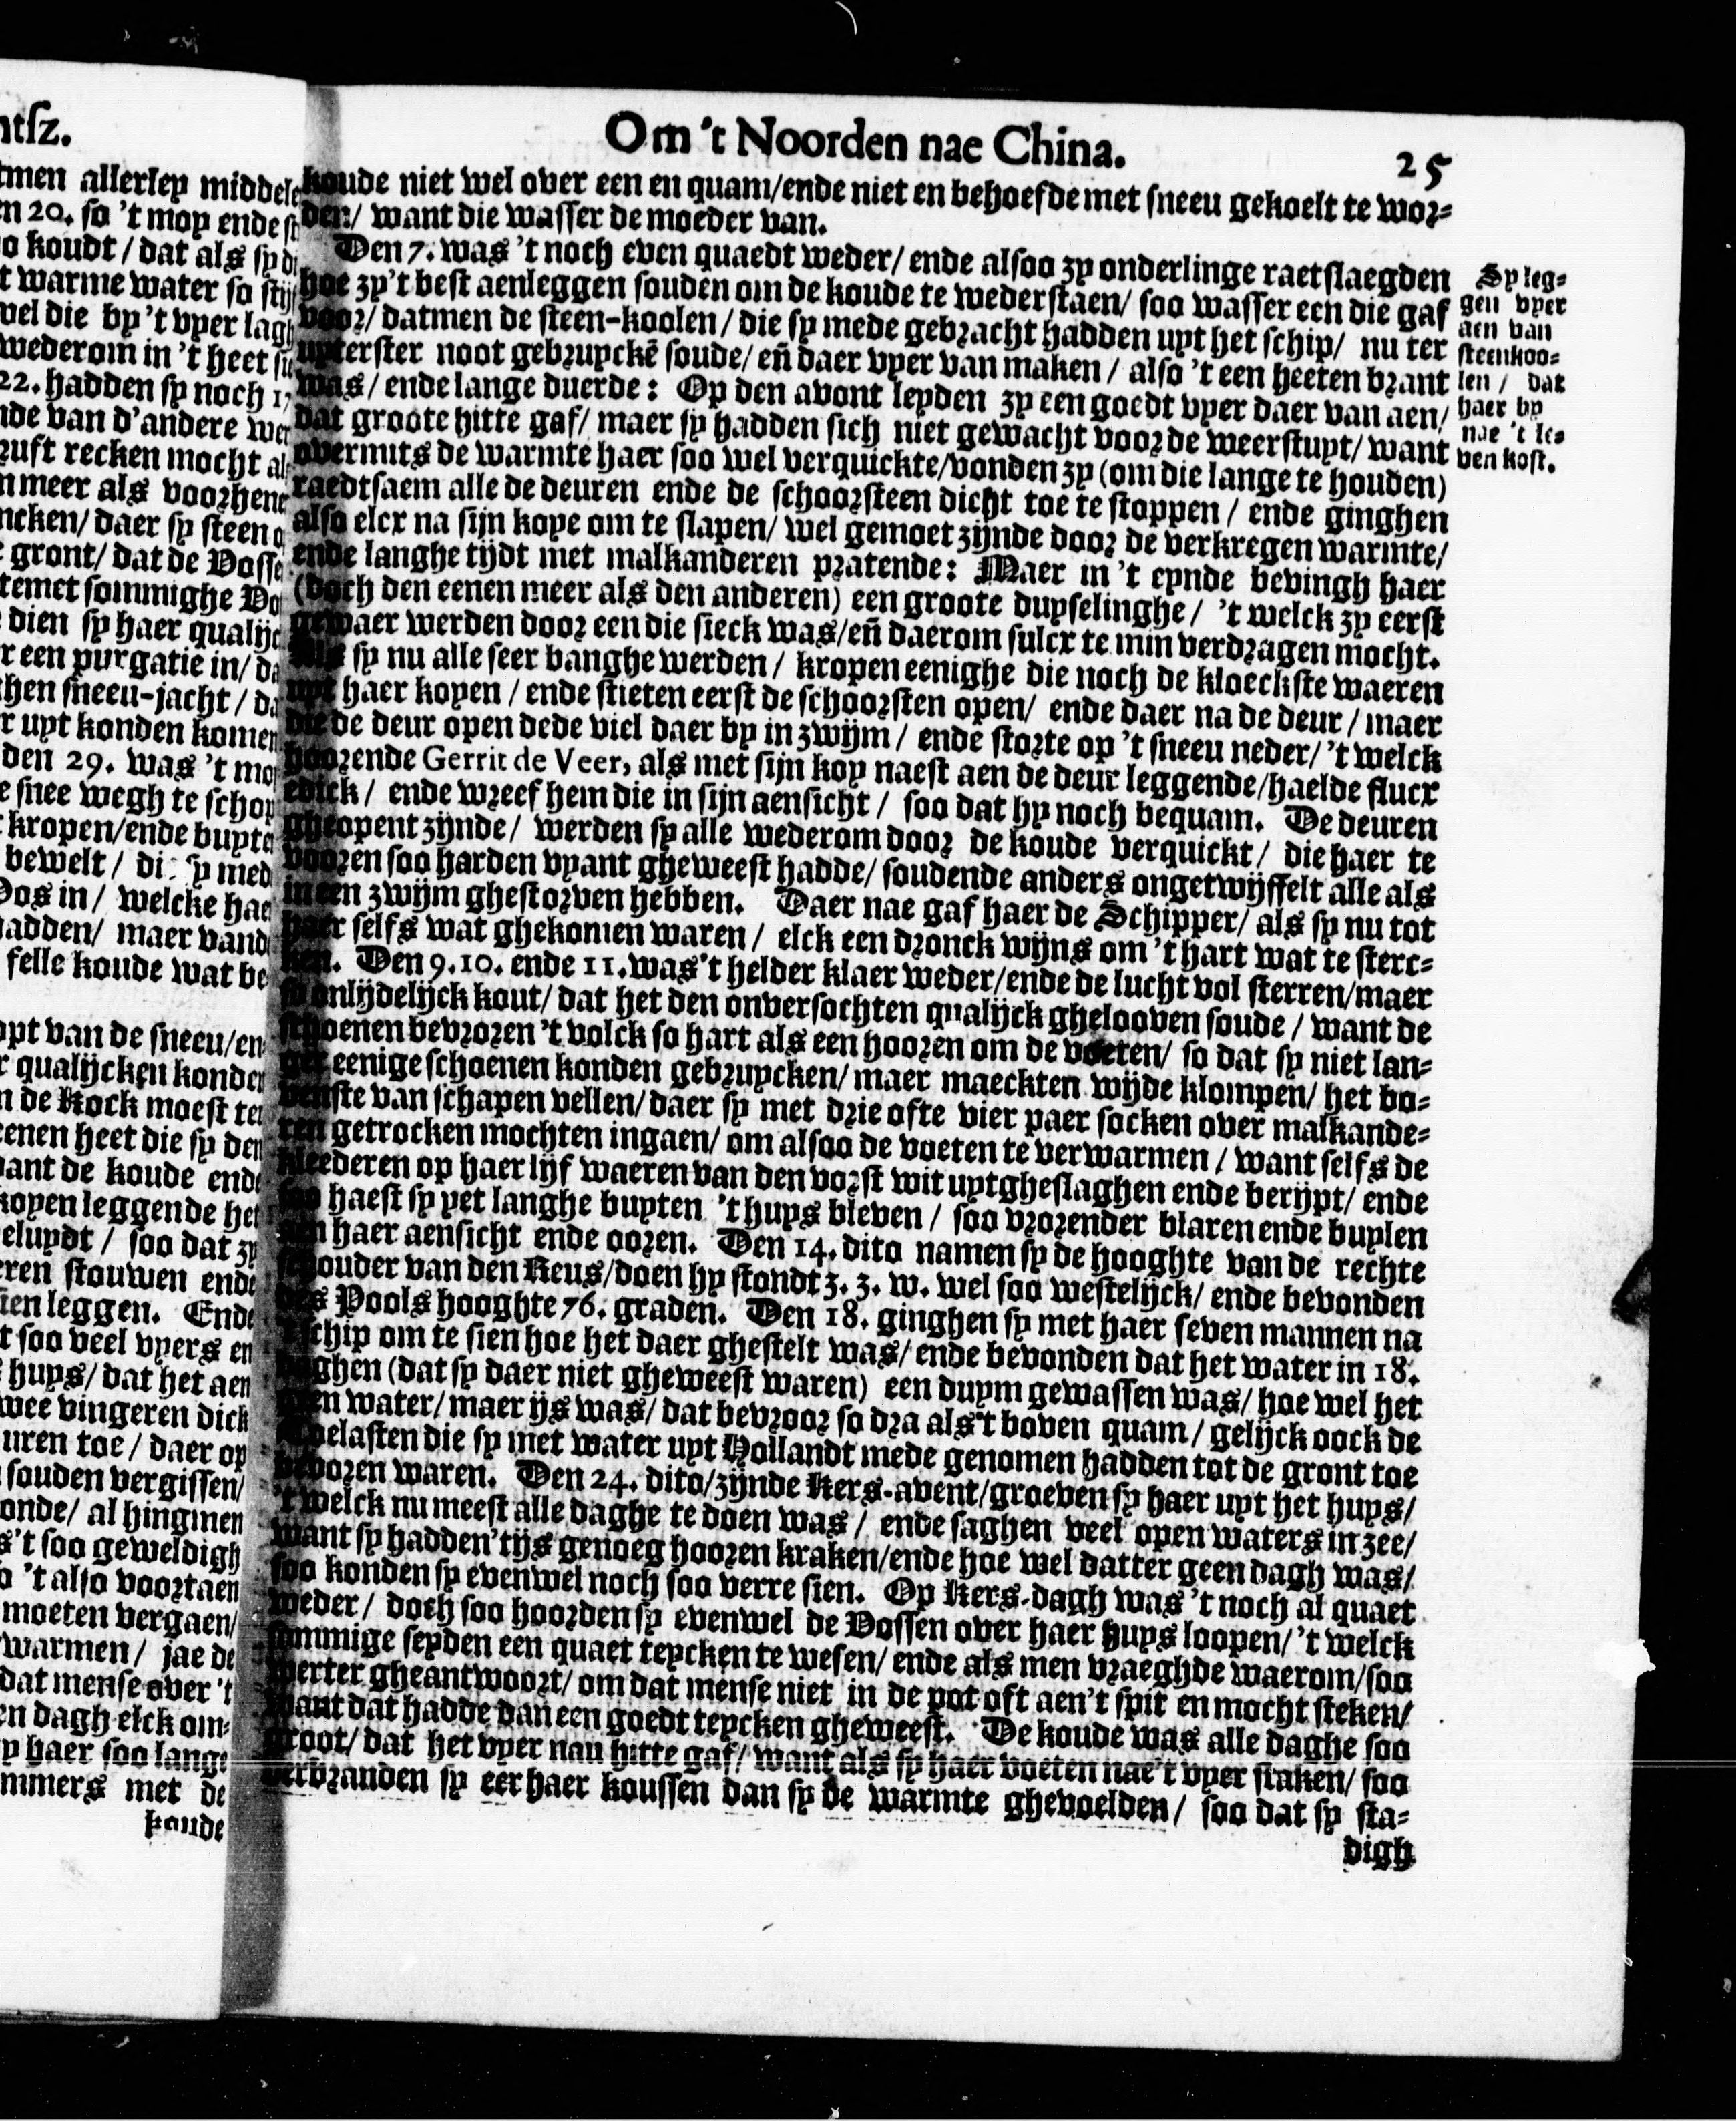 ntsz.
tmen allerley middele
n 20. so 't moy ende st
o koudt / dat als sy di
t warme water so stijf
wel die by 't vyer lagh
wederom in 't heet
22. hadden sy noch 17
nde van d'andere wer
ruft recken mocht al
n meer als voorhene
ncken/ daer sy steen
e gront/ dat de Vosse
temet sommighe Vo
dien sy haer qualijc
r een purgatie in/ da
hen sneeu-jacht / da
r uyt konden komen
den 29. was 't mo
e snee wegh te schop
kropen/ende buyte
bewelt / di sy med
Vos in / welcke hae
hadden/ maer vand
felle koude wat be
opt van de sneeu/en
r qualijcken konden
n de Kock moest ter
eenen heet die sy den
want de koude ende
koyen leggende het
eluydt / soo dat zy
eren stouwen ende
ien leggen. Ende
t soo veel vyers en
huys/ dat het aen
twee vingeren dick
uren toe / daer op
souden vergissen/
onde/ al hingmen
s't soo geweldigh
o 't also voortaen
moeten vergaen/
warmen / jae de
dat mense over 't
en dagh elck om-
y haer soo lange
mmers met de
koude
Om 't Noorden nae China.
25
koude niet wel over een en quam/ende niet en behoefde met sneeu gekoelt te wor-
den/ want die wasser de moeder van.
Den 7. was 't noch even quaedt weder/ ende alsoo zy onderlinge raetslaegden
hoe zy't best aenleggen souden om de koude te wederstaen/ soo wasser een die gaf
voor/ datmen de steen-koolen / die sy mede gebracht hadden uyt het schip/ nu ter
uyterster noot gebruyckē soude/ eñ daer vyer van maken / also 't een heeten brant
was/ ende lange duerde: Op den avont leyden zy een goedt vyer daer van aen/
dat groote hitte gaf/ maer sy hadden sich niet gewacht voor de weerstuyt/ want
overmits de warmte haer soo wel verquickte/vonden zy (om die lange te houden)
raedtsaem alle de deuren ende de schoorsteen dicht toe te stoppen / ende ginghen
also elcx na sijn koye om te slapen/ wel gemoet zijnde door de verkregen warmte/
ende langhe tijdt met malkanderen pratende: Maer in 't eynde bevingh haer
(doch den eenen meer als den anderen) een groote duyselinghe / 't welck zy eerst
gewaer werden door een die sieck was/eñ daerom sulcx te min verdragen mocht.
Als sy nu alle seer banghe werden / kropen eenighe die noch de kloeckste waeren
uyt haer koyen / ende stieten eerst de schoorsten open/ ende daer na de deur / maer
die de deur open dede viel daer by in zwijm / ende storte op 't sneeu neder/ 't welck
hoorende Gerrit de Veer, als met sijn koy naest aen de deur leggende/haelde flucx
edick / ende wreef hem die in sijn aensicht / soo dat hy noch bequam. De deuren
gheopent zijnde / werden sy alle wederom door de koude verquickt / die haer te
vooren soo harden vyant gheweest hadde/ soudende anders ongetwijffelt alle als
in een zwijm ghestorven hebben. Daer nae gaf haer de Schipper/ als sy nu tot
haer selfs wat ghekomen waren / elck een dronck wijns om 't hart wat te sterc-
ken. Den 9. 10. ende 11. was't helder klaer weder/ende de lucht vol sterren/maer
so onlijdelijck kout/ dat het den onversochten qualijck ghelooven soude / want de
schoenen bevroren 't volck so hart als een hooren om de voeten/ so dat sy niet lan-
ger eenige schoenen konden gebruycken/ maer maeckten wijde klompen/ het bo-
venste van schapen vellen/ daer sy met drie ofte vier paer socken over malkande-
ren getrocken mochten ingaen/ om alsoo de voeten te verwarmen / want selfs de
kleederen op haer lijf waeren van den vorst wit uytgheslaghen ende berijpt/ ende
soo haest sy yet langhe buyten 't huys bleven / soo vrorender blaren ende buylen
aen haer aensicht ende ooren. Den 14. dito namen sy de hooghte van de rechte
schouder van den Reus/doen hy stondt z. z. w. wel soo westelijck/ ende bevonden
des Pools hooghte 76. graden. Den 18. ginghen sy met haer seven mannen na
't schip om te sien hoe het daer ghestelt was/ ende bevonden dat het water in 18.
daghen (dat sy daer niet gheweest waren) een duym gewassen was/ hoe wel het
geen water/ maer ijs was/ dat bevroor so dra als't boven quam / gelijck oock de
belasten die sy met water uyt Hollandt mede genomen hadden tot de gront toe
bevroren waren. Den 24. dito/zijnde Kers-avent/groeven sy haer uyt het huys/
't welck nu meest alle daghe te doen was / ende saghen veel open waters in zee/
want sy hadden 'tijs genoeg hooren kraken/ende hoe wel datter geen dagh was/
soo konden sy evenwel noch soo verre sien. Op Kers-dagh was 't noch al quaet
weder / doch soo hoorden sy evenwel de Vossen over haer huys loopen/ 't welck
sommige seyden een quaet teycken te wesen/ ende als men vraeghde waerom/soo
werter gheantwoort/ om dat mense niet in de pot oft aen't spit en mocht steken/
want dat hadde dan een goedt teycken gheweest. De koude was alle daghe soo
groot/ dat het vyer nau hitte gaf/ want als sy haer voeten nae't vyer staken/ soo
verbranden sy eer haer koussen dan sy de warmte ghevoelden / soo dat sy sta-
digh
Sy leg-
gen vyer
aen van
steenkoo-
len / dat
haer by
nae 't le-
ven kost.